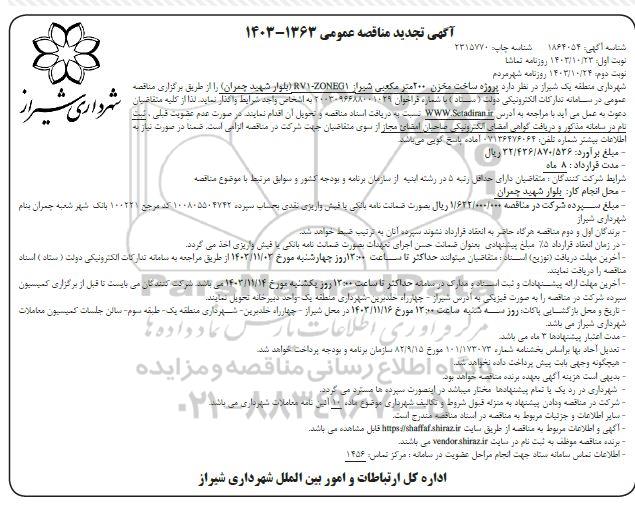 آگهی تجدید مناقصه عمومی ۱۳۶۳-۱۴۰۳
شناسه آگهی: ۱۸۶۴۰۵۴ شناسه چاپ: ۲۳۱۵۷۷۰
نوبت اول: ۱۴۰۳/۱۰/۲۳ روزنامه تماشا
نوبت دوم: ۱۴۰۳/۱۰/۲۴ روزنامه شهرمردم
شهرداری شیراز
شهرداری منطقه یک شیراز در نظر دارد پروژه ساخت مخزن ۲۰۰متر مکعبی شیراز RV1-ZONEG1 (بلوار شهید چمران) را از طریق برگزاری مناقصه
عمومی در سامانه تدارکات الکترونیکی دولت ( ستاد ) با شماره فراخوان ۲۰۰۳۰۹۶۶۸۸۰۰۱۰۲۹ به اشخاص واجد شرایط واگذار نماید. لذا از کلیه متقاضیان
دعوت به عمل می آید با مراجعه به آدرس WWW.Setadiran.ir نسبت به دریافت اسناد مناقصه و تحویل آن اقدام نمایند. در صورت عدم عضویت قبلی ، ثبت
نام در سامانه مذکور و دریافت گواهی امضای الکترونیکی صاحبان امضای مجاز از سوی متقاضیان جهت شرکت در مناقصه الزامی است. ضمنا در صورت نیاز به
اطلاعات بیشتر شماره تلفن: ۰۷۱۳۶۴۷۶۰۶۴ آماده پاسخ گویی می‌باشد.
- مبلغ برآورد: ۳۲/۴۳۶/۸۷۰/۵۳۶ ریال
- مدت قرارداد : ۸ ماه
شرایط شرکت کنندگان : متقاضیان دارای حداقل رتبه ۵ در رشته ابنیه از سازمان برنامه و بودجه کشور و سوابق مرتبط با موضوع مناقصه
- محل انجام کار: بلوار شهید چمران
- مبلغ سپرده شرکت در مناقصه ۱/۶۲۲/۰۰۰/۰۰۰ ریال بصورت ضمانت نامه بانکی یا فیش واریزی نقدی بحساب سپرده ۱۰۰۸۰۵۵۰۴۷۴۲ کد مرجع ۱۰۰۲۲۱ بانک شهر شعبه چمران بنام
شهرداری شیراز
- برندگان اول و دوم مناقصه هرگاه حاضر به انعقاد قرارداد نشوند سپرده آنان به ترتیب ضبط خواهد شد.
- در زمان انعقاد قرارداد ۵٪ مبلغ پیشنهادی بعنوان ضمانت حسن اجرای تعهدات بصورت ضمانت نامه بانکی یا فیش واریزی اخذ می گردد.
- آخرین مهلت دریافت (توزیع) اسناد : متقاضیان میتوانند حداکثر تا ساعت ۱۳:۰۰روز چهارشنبه مورخ ۱۴۰۳/۱۱/۰۳ از طریق مراجعه به سامانه تدارکات الکترونیکی دولت ( ستاد ) اسناد
مناقصه را دریافت نمایند.
- آخرین مهلت ارائه پیشنهادات و ثبت اسناد و مدارک در سامانه حداکثر تا ساعت ۱۳:۰۰ روز یکشنبه مورخ ۱۴۰۳/۱۱/۱۴ می باشد. شرکت کنندگان می بایست تا قبل از برگزاری کمیسیون
سپرده شرکت در مناقصه را به صورت فیزیکی به آدرس شیراز - چهارراه خلدبرین-شهرداری منطقه یک- واحد دبیرخانه تحویل نمایند.
- تاریخ و محل بازگشایی پاکات: روز سه شنبه ساعت ۱۳:۰۰ مورخ ۱۴۰۳/۱۱/۱۶ در محل شیراز - چهارراه خلدبرین- شهرداری منطقه یک- طبقه سوم- سالن جلسات کمیسیون معاملات
شهرداری شیراز می باشد.
- مدت اعتبار پیشنهادها ۳ ماه می باشد.
- تعدیل آحاد بها براساس بخشنامه شماره ۱۰۱/۱۷۳۰۷۳ مورخ ۸۲/۹/۱۵ سازمان برنامه و بودجه پرداخت خواهد شد.
- هیچگونه وجهی بابت پیش پرداخت داده نخواهد شد.
- بدیهی است هزینه آگهی بعهده برنده مناقصه خواهد بود.
- شهرداری در رد یک یا تمام پیشنهادها مختار میباشد در اینصورت سپرده ها مسترد می گردد.
- شرکت در مناقصه ودادن پیشنهاد به منزله قبول شروط و تکالیف شهرداری موضوع ماده ۱۰ آئین نامه معاملات شهرداری می باشد.
- سایر اطلاعات و جزئیات مربوط به مناقصه در اسناد مناقصه مندرج است.
- آگهی و اطلاعات مربوط به مناقصه از طریق سایت https://shaffaf.shiraz.ir قابل مشاهده می باشد.
- برنده مناقصه موظف به ثبت نام در سایت vendor.shiraz.ir می باشند.
- اطلاعات تماس سامانه ستاد جهت انجام مراحل عضویت در سامانه : مرکز تماس: ۱۴۵۶
اداره کل ارتباطات و امور بین الملل شهرداری شیراز